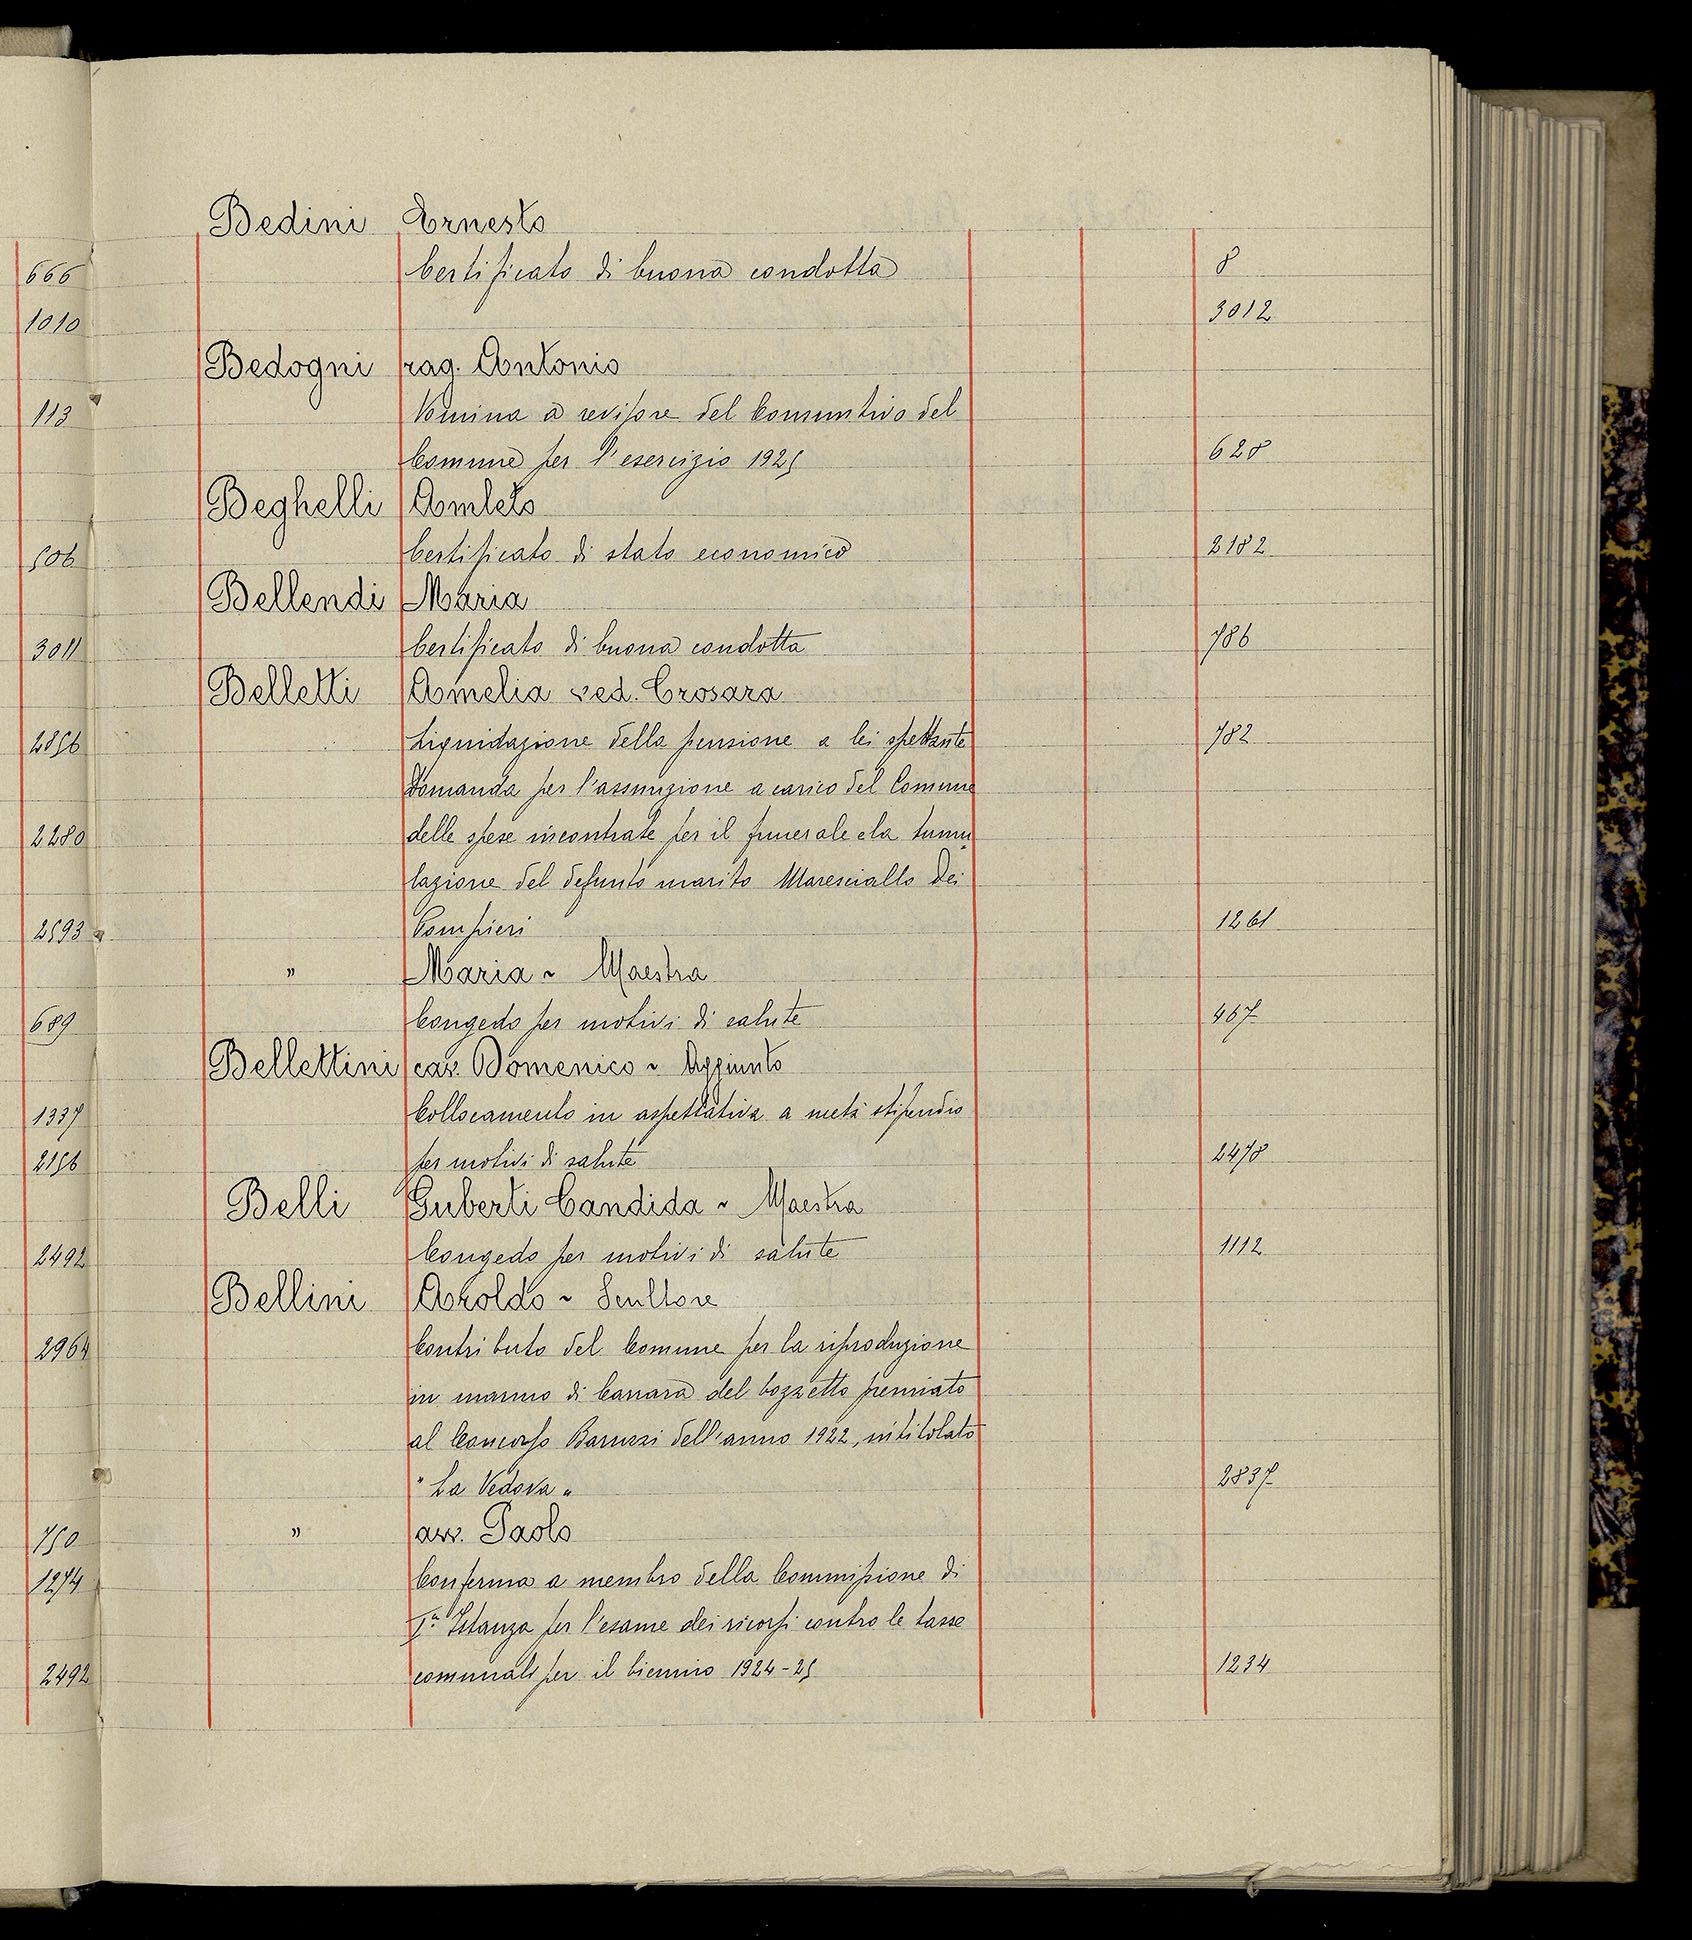 Bedini Ernesto
Certificato di buona condotta 8
3012
Bedogni rag. Antonio
Nomina a revisore del Consuntivo del
Comune per l'esercizio 1925 628
Beghelli Amleto
Certificato di stato economico 2182
Bellendi Maria
Certificato di buona condotta 786
Belletti Amelia ved. Crosara
Liquidazione della pensione a lei spettante 782
Domanda per l'assunzione a carico del Comune
delle spese incontrate per il funerale e la tumu„
lazione del defunto marito Maresciallo dei
Pompieri 1261
" Maria ~ Maestra
Congedo per motivi di salute 467
Bellettini cav. Domenico ~ Aggiunto
Collocamento in aspettativa a metà stipendio
per motivi di salute 2478
Belli Guberti Candida ~ Maestra
Congedo per motivi di salute 1112
Bellini Aroldo ~ Scultore
Contributo del Comune per la riproduzione
in marmo di Carrara del bozzetto premiato
al Concorso Baruzzi dell'anno 1922, intitolato
"La Vedova" 2837
" avv. Paolo
Conferma a membro della Commissione di
Iª Istanza per l'esame dei ricorsi contro le tasse
comunali per il biennio 1924-25 1234
666
1010
113
506
3011
2856
2280
2593
689
1337
2156
2492
2964
750
1274
2492